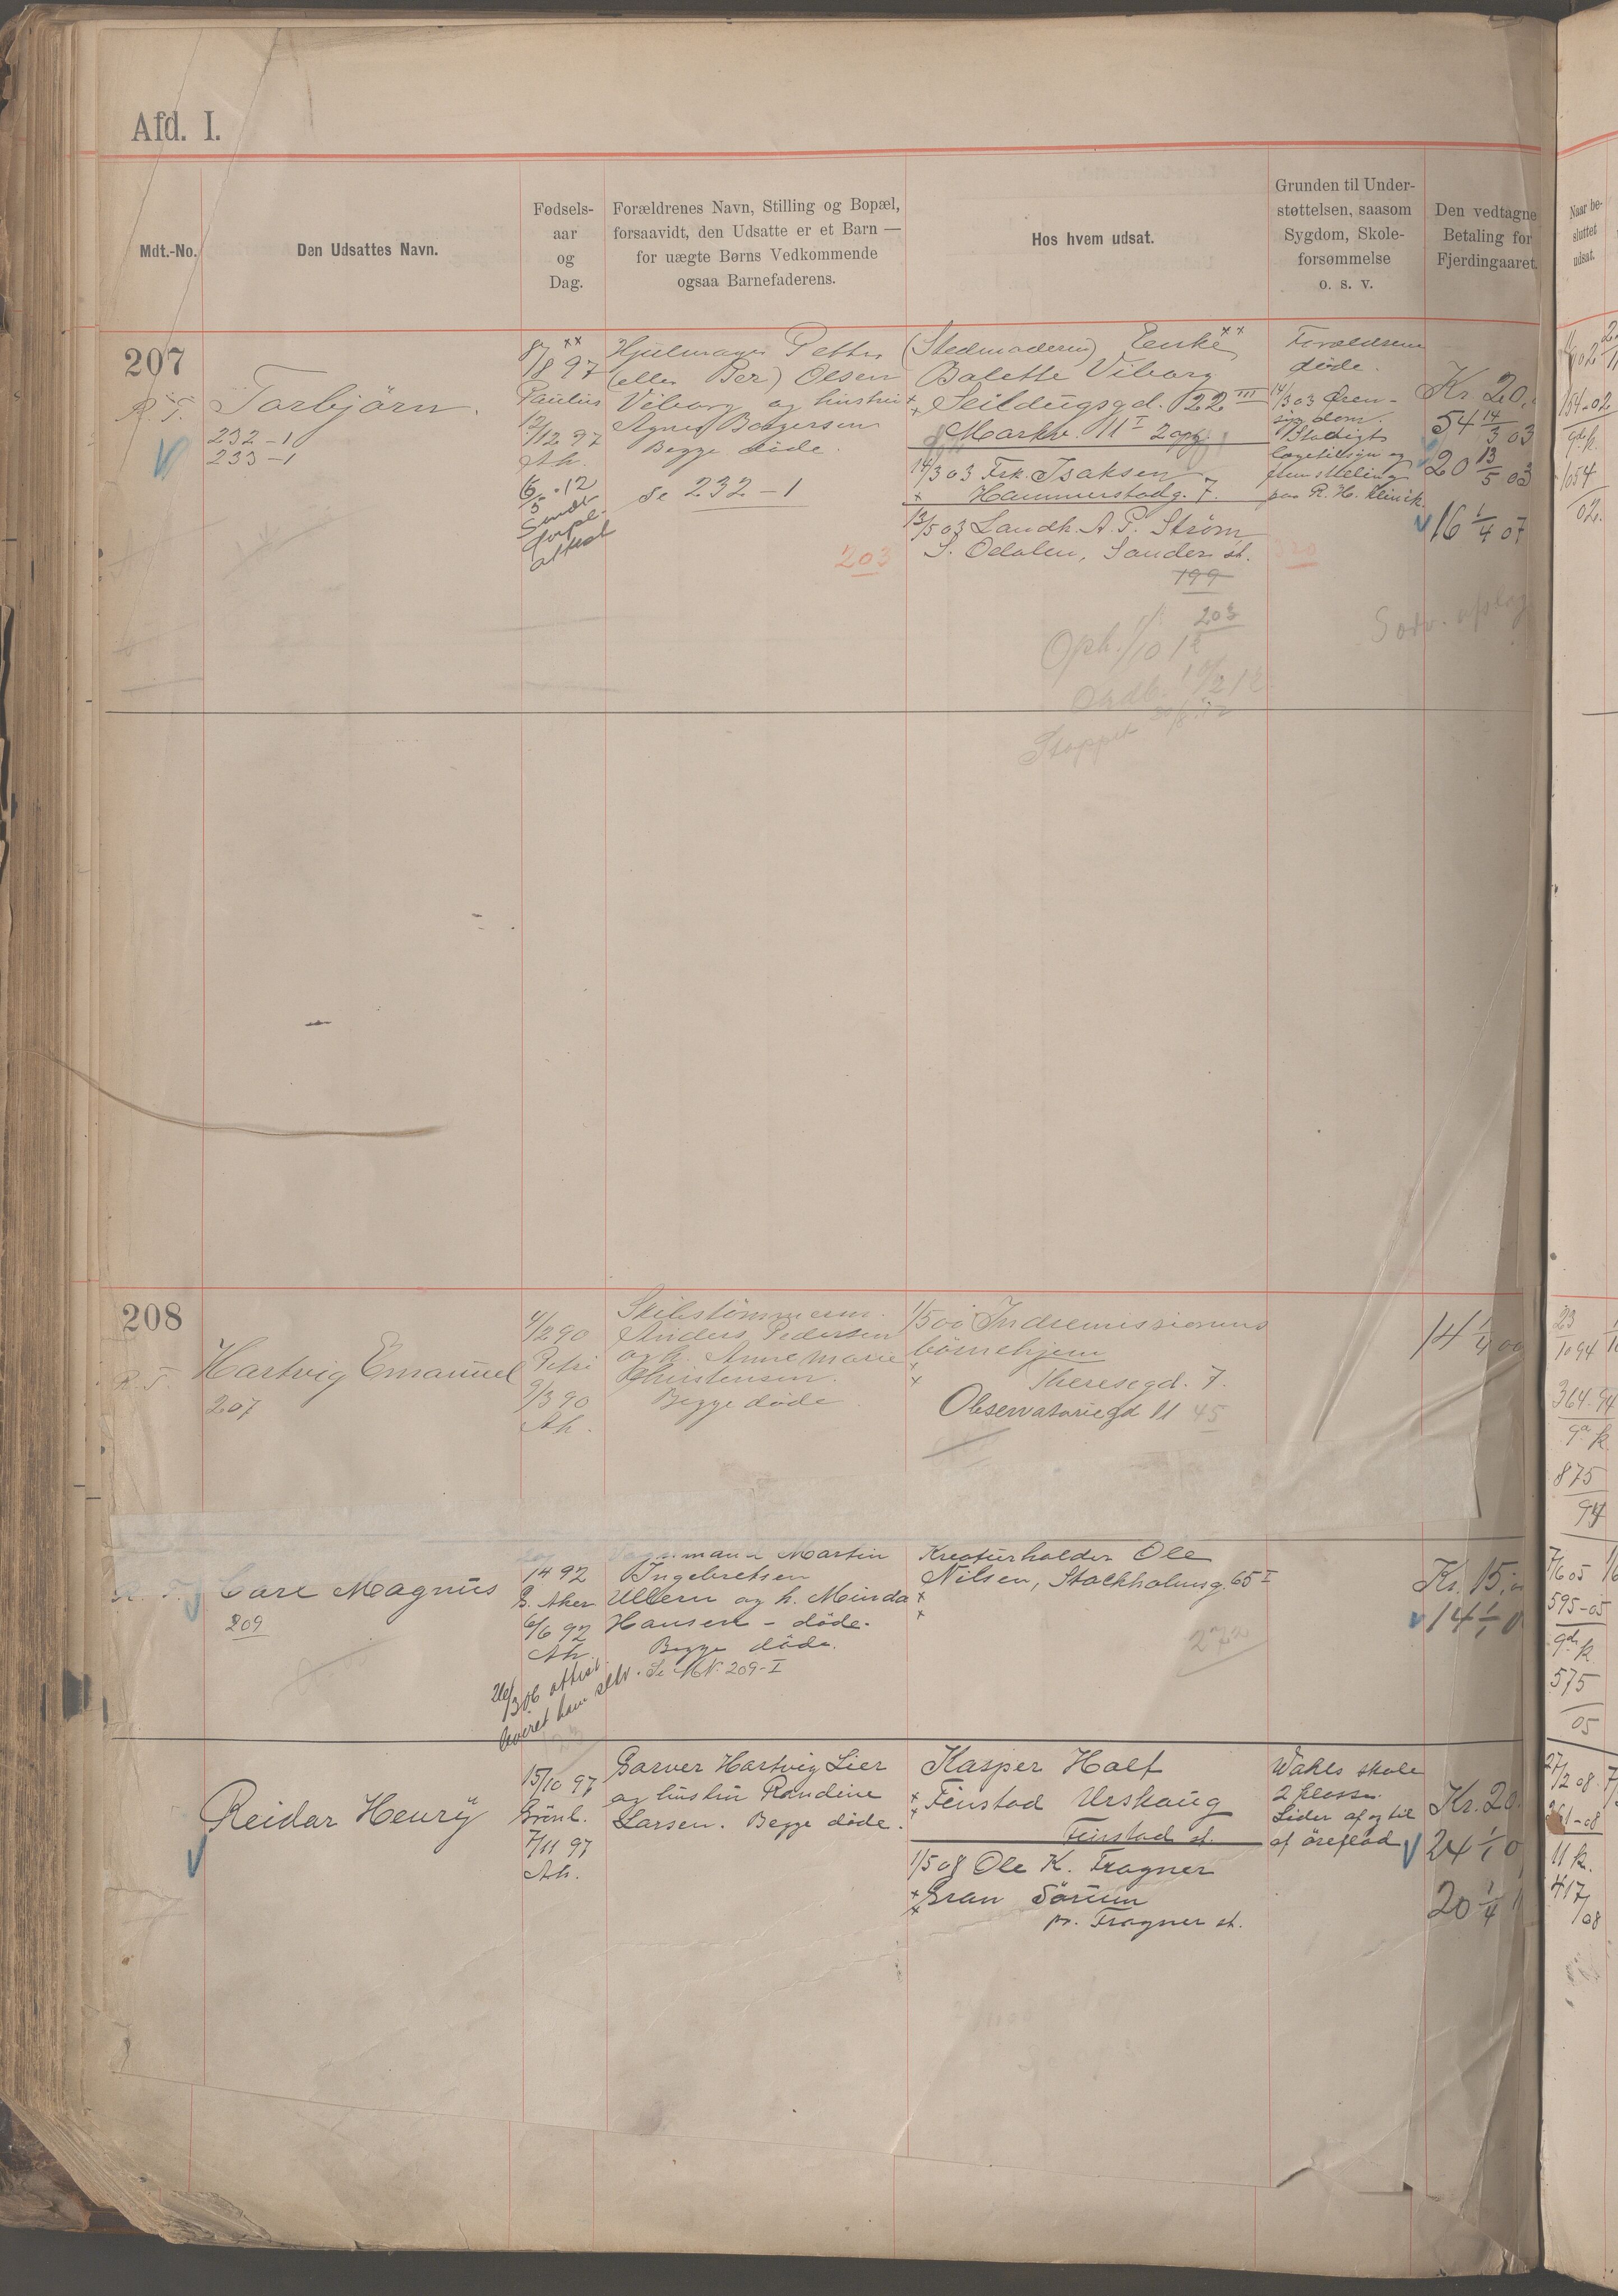 Afd. I.
Mdt.-No.
Den Udsattes Navn.
Fødsels-
aar
og
Dag.
Forældrenes Navn, Stilling og Bopæl,
forsaavidt, den Udsatte er et Barn —
for uægte Børns Vedkommende
ogsaa Barnefaderens.
Hos hvem udsat.
Grunden til Under-
støttelsen, saasom
Sygdom, Skole-
forsømmelse
o. s. v.
Den vedtagne
Betaling for
Fjerdingaaret.
Naar be-
sluttet
udsat.
207
R. T.
Torbjörn.
232-1
233-1
8/8 97
Paulus
12/12 97
Ah.
6/5 12
Sendt
attest
Hjulmager Petter
(eller Per) Olsen
Viborg og hustru
Agnes Borgersen
Begge döde.
se 232-1
203
(Stedmoderen) Enke
Balette Viborg
Seildugsgd. 22 III
Markv. 11 I 2 opg.
14/3 03 Frk. Isaksen
Hammerstadg. 7.
13/5 03 Landh. A. P. Strøm
S. Odalen, Sander st.
199
203
Oph. 1/10 12
Stoppet
Forældrene
döde.
14/3 03 Øren-
sygdom.
Stadigt
lægetilsyn og
paa R. H. Klinik.
Kr. 20.
54 14/3 03
20 13/5 03
16 1/4 07
208
R. T.
Hartvig Emanuel
207
4/2 90
Petri
9/3 90
Ah.
Skibstömmerm.
Anders Pedersen
og h. Anne Marie
Christensen.
Begge döde
1/5 01 Indremissionens
börnehjem
Theresegd. 7.
Observatoriegd 11 45
14 1/4 00
Carl Magnus
209
1/4 92
G. Aker
6/6 92
Ah.
26/3 06 attest
leveret ham selv.
Martin
Ingebretsen
Ullern og h. Minda
Hansen - döde.
Begge döde.
Se M.N. 209-I
Kreaturholder Ole
Nilsen, Stockholmsg. 65 I
272
Kr. 15.
14 1/1 0
Reidar Henry
15/10 97
Grönl.
7/11 97
Ah.
Garver Hartvig Lier
og hustru Randine
Larsen. Begge döde.
Kasper Holt
Finstad Urskaug
Finstad st.
1/5 08 Ole K. Frogner
Gran Sörum
pr. Frogner st.
Vahls skole
2 klasse.
Lider af og til
af öreflod
Kr. 20.
24 1/1 0
20 1/4
23
10 94
364-94
9de k
875
94
7/6 05
595-05
9de k
575
05
27/2 08
261-08
11 k.
417
/08